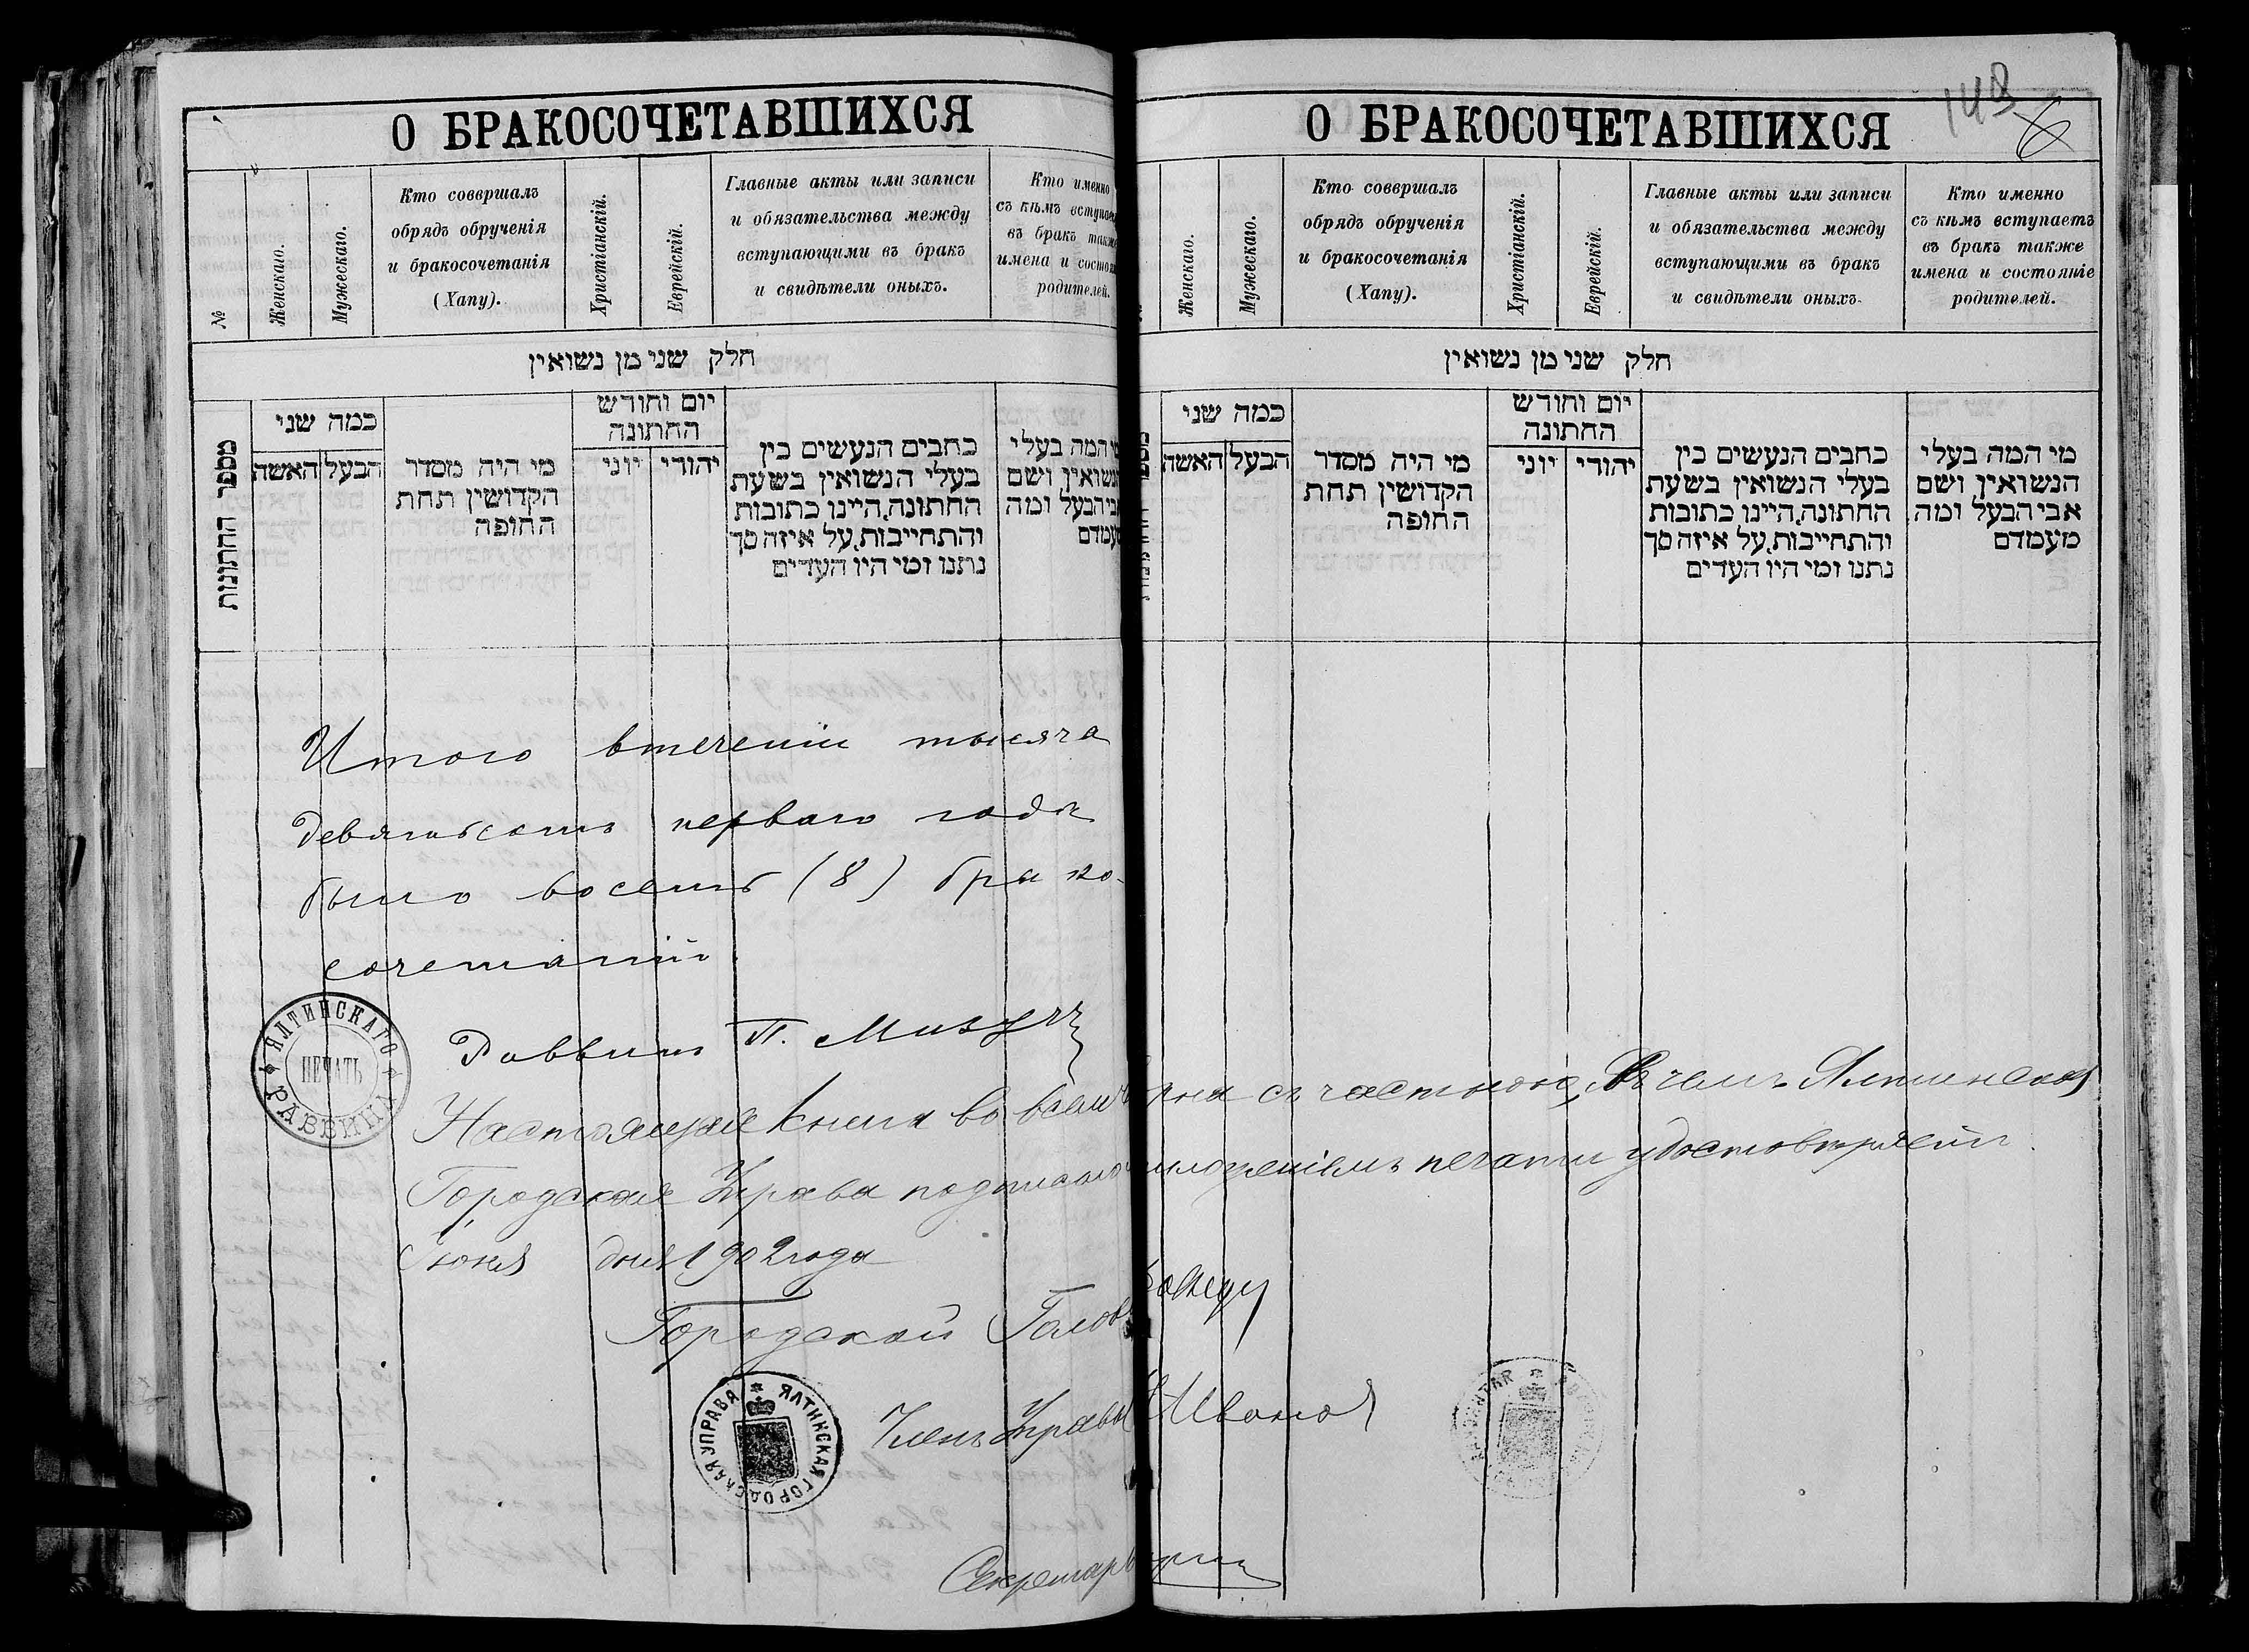 О БРАКОСОЧЕТАВШИХСЯ
№
Женскаго.
Мужескаго.
Кто соввршалъ
обрядъ обрученія
и бракосочетанія
(Хапу).
Христіанскій.
Еврейскій.
Главные акты или записи
и обязательства между
вступающими въ бракъ
и свидѣтели оныхъ.
Кто именно
съ кѣмъ вступае
въ бракъ также
имена и состоян
родителей.
חלק שני מן נשואין
מספר החתונות
כמה שני
האשה
הבעל
מי היה מסדר
הקדושין תחת
החופה
יום וחודש
החתונה
יוני
יהודי
כתבים הנעשים בין
בעלי הנשואין בשעת
החתונה, היינו כתובות
והתחייבות, על איזה סך
נתנו ומי היו העדים
מי המה בעלי
הנשואין ושם
אבי הבעל ומה
מעמדם
Итого втеченіи тысяча
девятьсотъ перваго года
было восемь (8) брако-
сочетаній.
Раввинъ П. Мизуч
ЯЛТИНСКАГО РАВВИНА
ПЕЧАТЬ
Настоящая книга во всемъ вѣрна съ частною, въ чемъ Ялтинская
Городская Управа подписомъ и приложеніемъ печати удостовѣряетъ.
Іюня дня 1902 года
Городской Голова
Членъ Управы Иванов
ЯЛТИНСКАЯ ГОРОДСКАЯ УПРАВА
Секретарь
148
6
О БРАКОСОЧЕТАВШИХСЯ
Женскаго.
Мужескаго.
Кто соввршалъ
обрядъ обрученія
и бракосочетанія
(Хапу).
Христіанскій.
Еврейскій.
Главные акты или записи
и обязательства между
вступающими въ бракъ
и свидѣтели оныхъ.
Кто именно
съ кѣмъ вступаетъ
въ бракъ также
имена и состояніе
родителей.
חלק שני מן נשואין
כמה שני
האשה
הבעל
מי היה מסדר
הקדושין תחת
החופה
יום וחודש
החתונה
יוני
יהודי
כתבים הנעשים בין
בעלי הנשואין בשעת
החתונה, היינו כתובות
והתחייבות, על איזה סך
נתנו ומי היו העדים
מי המה בעלי
הנשואין ושם
אבי הבעל ומה
מעמדם